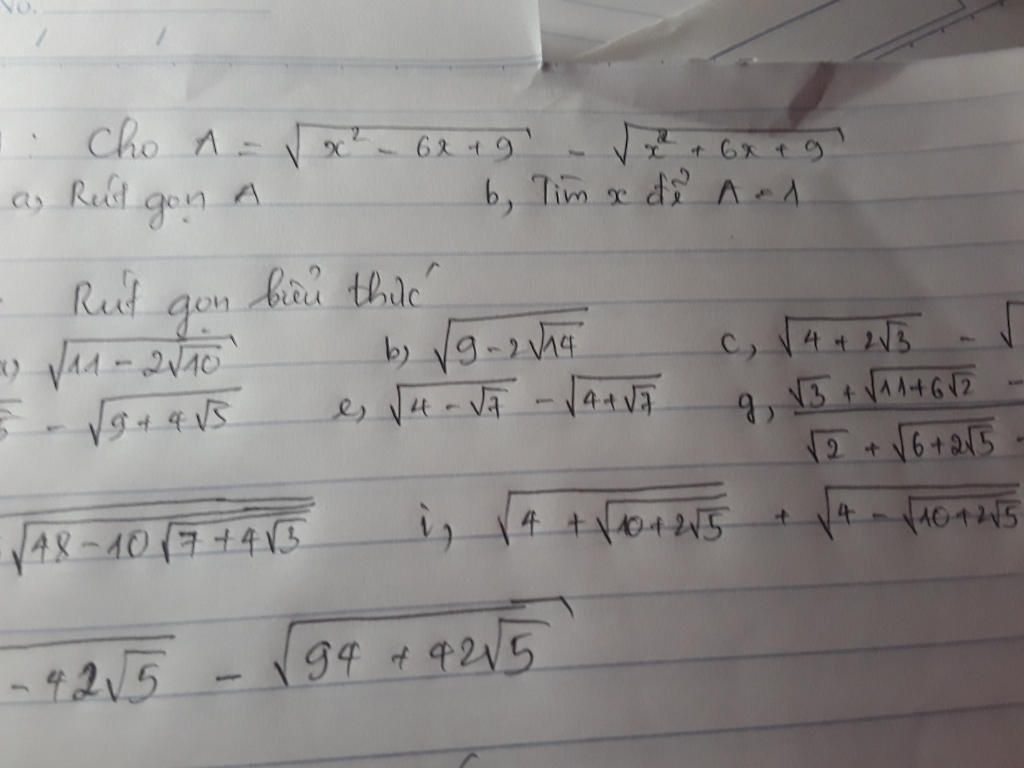 No.
: Cho A = √(x² - 6x + 9) - √(x² + 6x + 9)
a, Rút gọn A b, Tìm x để A = 1
Rút gọn biểu thức
a) √(11 - 2√10) b) √(9 - 2√14) c, √(4 + 2√3) - √
- √(9 + 4√5) e, √(4 - √7) - √(4 + √7) g, (√3 + √(11 + 6√2) - / √2 + √(6 + 2√5) -
√(48 - 10√(7 + 4√3)) i, √(4 + √(10 + 2√5)) + √(4 - √(10 + 2√5))
- 42√5 - √(94 + 42√5)